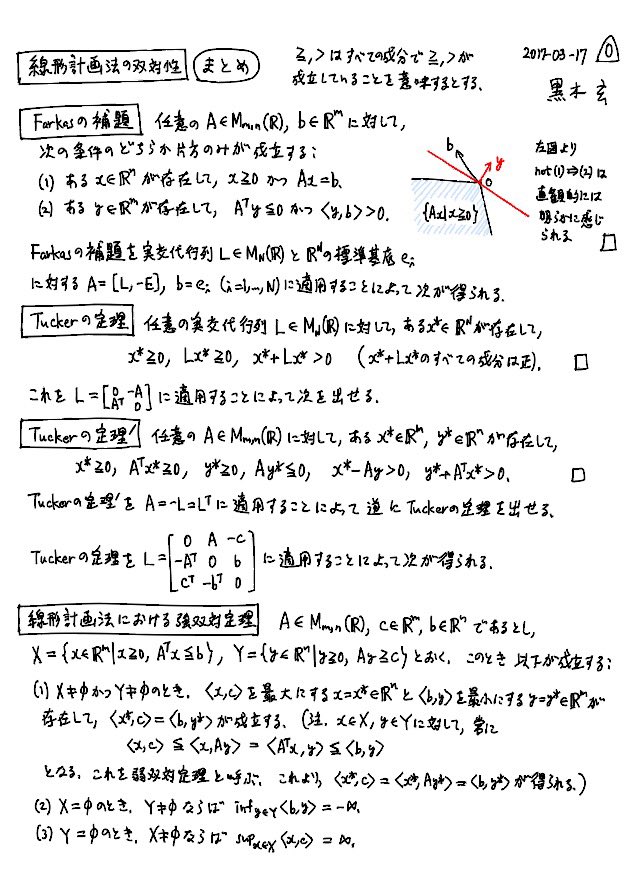 線形計画法の双対性 まとめ
≧, > はすべての成分で ≧, > が
成立していることを意味するとする.
2017-03-17 0
黒木 玄
Farkasの補題 任意の A∈Mm,n(R), b∈Rᵐ に対して,
次の条件のどちらか片方のみが成立する:
(1) ある x∈Rⁿ が存在して, x≧0 かつ Ax=b.
(2) ある y∈Rᵐ が存在して, Aᵀy≦0 かつ ⟨y,b⟩>0.
b y 0
{Ax|x≧0}
左図より
not(1)⇒(2) は
直観的には
明らかに感じ
られる □
Farkasの補題を実交代行列 L∈M_N(R) と R^Nの標準基底 eᵢ
に対する A=[L,-E], b=eᵢ (i=1,…,N) に適用することによって次が得られる.
Tuckerの定理 任意の実交代行列 L∈M_N(R) に対して, ある x*∈R^N が存在して,
x*≧0, Lx*≧0, x*+Lx*>0 (x*+Lx*のすべての成分は正). □
これを L=[0 -A; Aᵀ 0] に適用することによって次を出せる.
Tuckerの定理′ 任意の A∈Mm,n(R) に対して, ある x*∈Rᵐ, y*∈Rⁿ が存在して,
x*≧0, Aᵀx*≧0, y*≧0, Ay*≦0, x*-Ay>0, y*+Aᵀx*>0. □
Tuckerの定理′を A=-L=Lᵀ に適用することによって逆にTuckerの定理を出せる.
Tuckerの定理を L=[0 A -c; -Aᵀ 0 b; cᵀ -bᵀ 0] に適用することによって次が得られる.
線形計画法における強双対定理 A∈Mm,n(R), c∈Rᵐ, b∈Rⁿ であるとし,
X={x∈Rᵐ|x≧0, Aᵀx≦b}, Y={y∈Rⁿ|y≧0, Ay≧c} とおく. このとき以下が成立する:
(1) X≠φ かつ Y≠φ のとき, ⟨x,c⟩ を最大にする x=x*∈Rᵐ と ⟨b,y⟩ を最小にする y=y*∈Rⁿ が
存在して, ⟨x*,c⟩=⟨b,y*⟩ が成立する. (注. x∈X, y∈Y に対して, 常に
⟨x,c⟩≦⟨x,Ay⟩=⟨Aᵀx,y⟩≦⟨b,y⟩
となる. これを弱双対定理と呼ぶ. これより, ⟨x*,c⟩=⟨x*,Ay*⟩=⟨b,y*⟩ が得られる.)
(2) X=φ のとき, Y≠φ ならば inf_{y∈Y}⟨b,y⟩=-∞.
(3) Y=φ のとき, X≠φ ならば sup_{x∈X}⟨x,c⟩=∞.